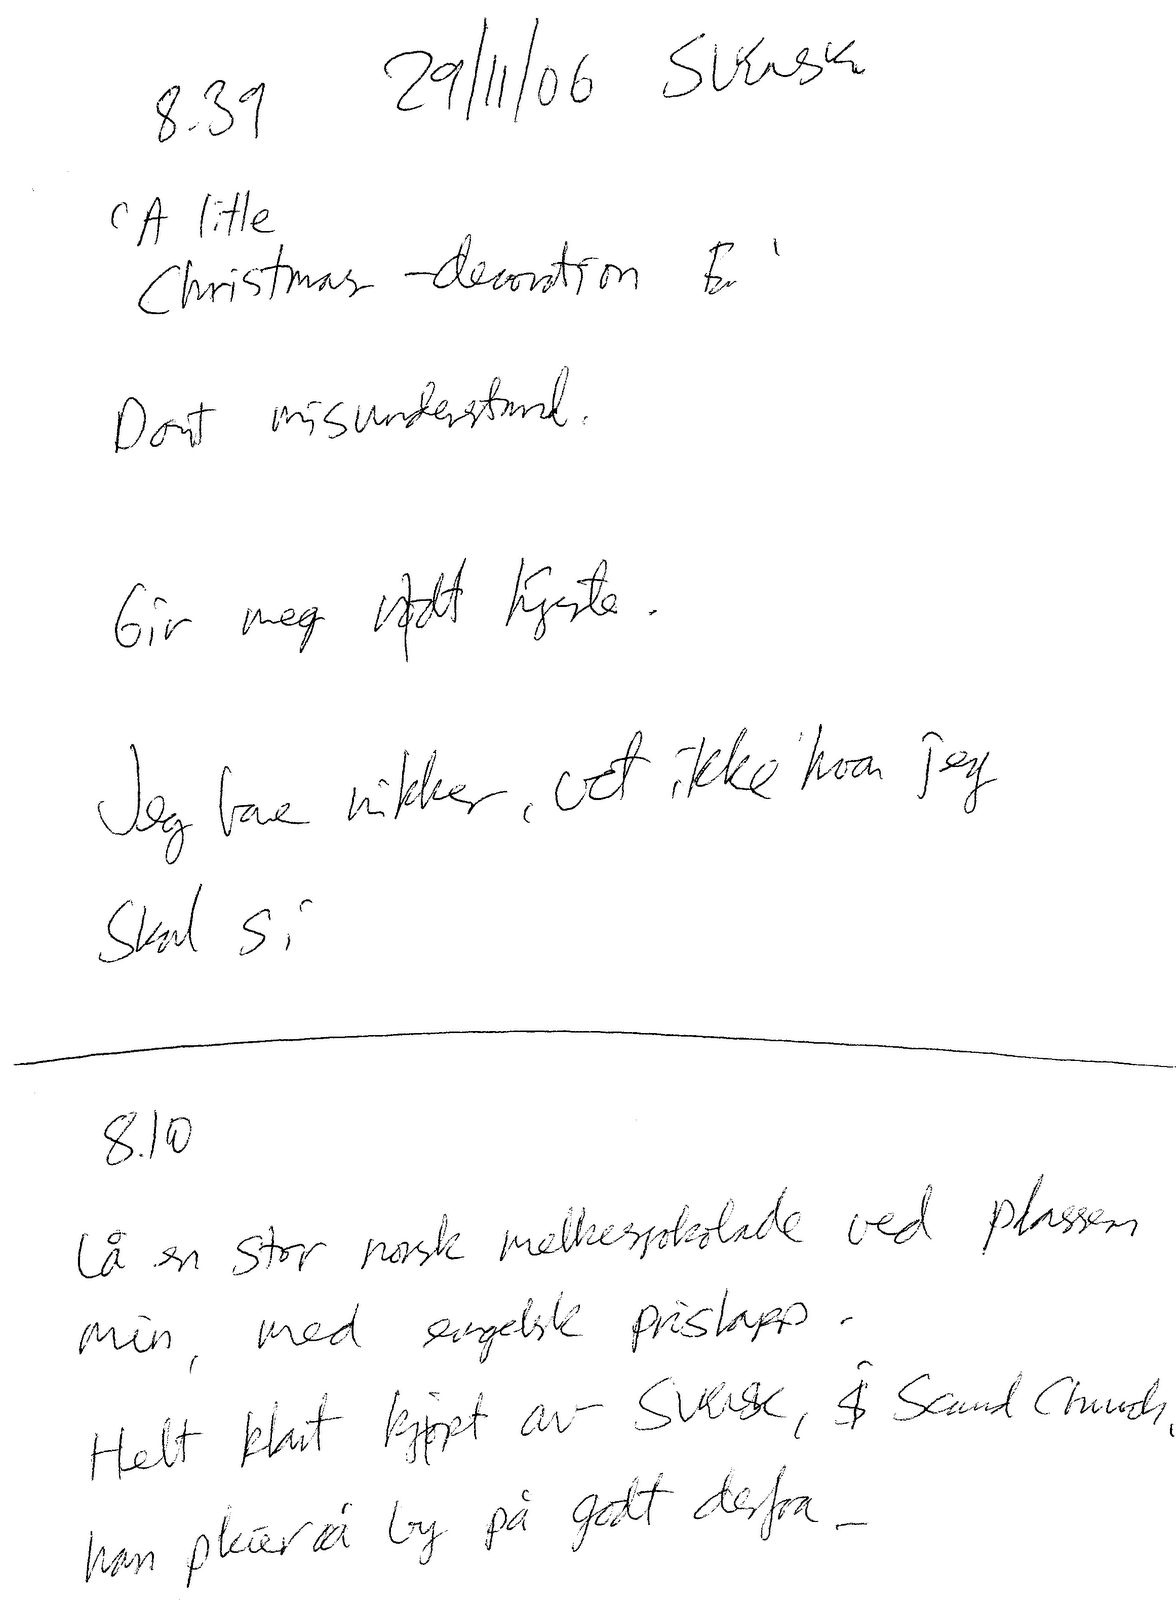 8.39 29/11/06 Svensk
'A litle
Christmas-decoration Er'
Dont misunderstand.
Gir meg rødt hjerte.
Jeg bare nikker, vet ikke hva jeg
skal si
8.10
Lå en stor norsk melkesjokolade ved plassen
min, med engelsk prislapp.
Helt klart kjøpt av Svensk, i Scand Church,
han pleier å by på godt derfra